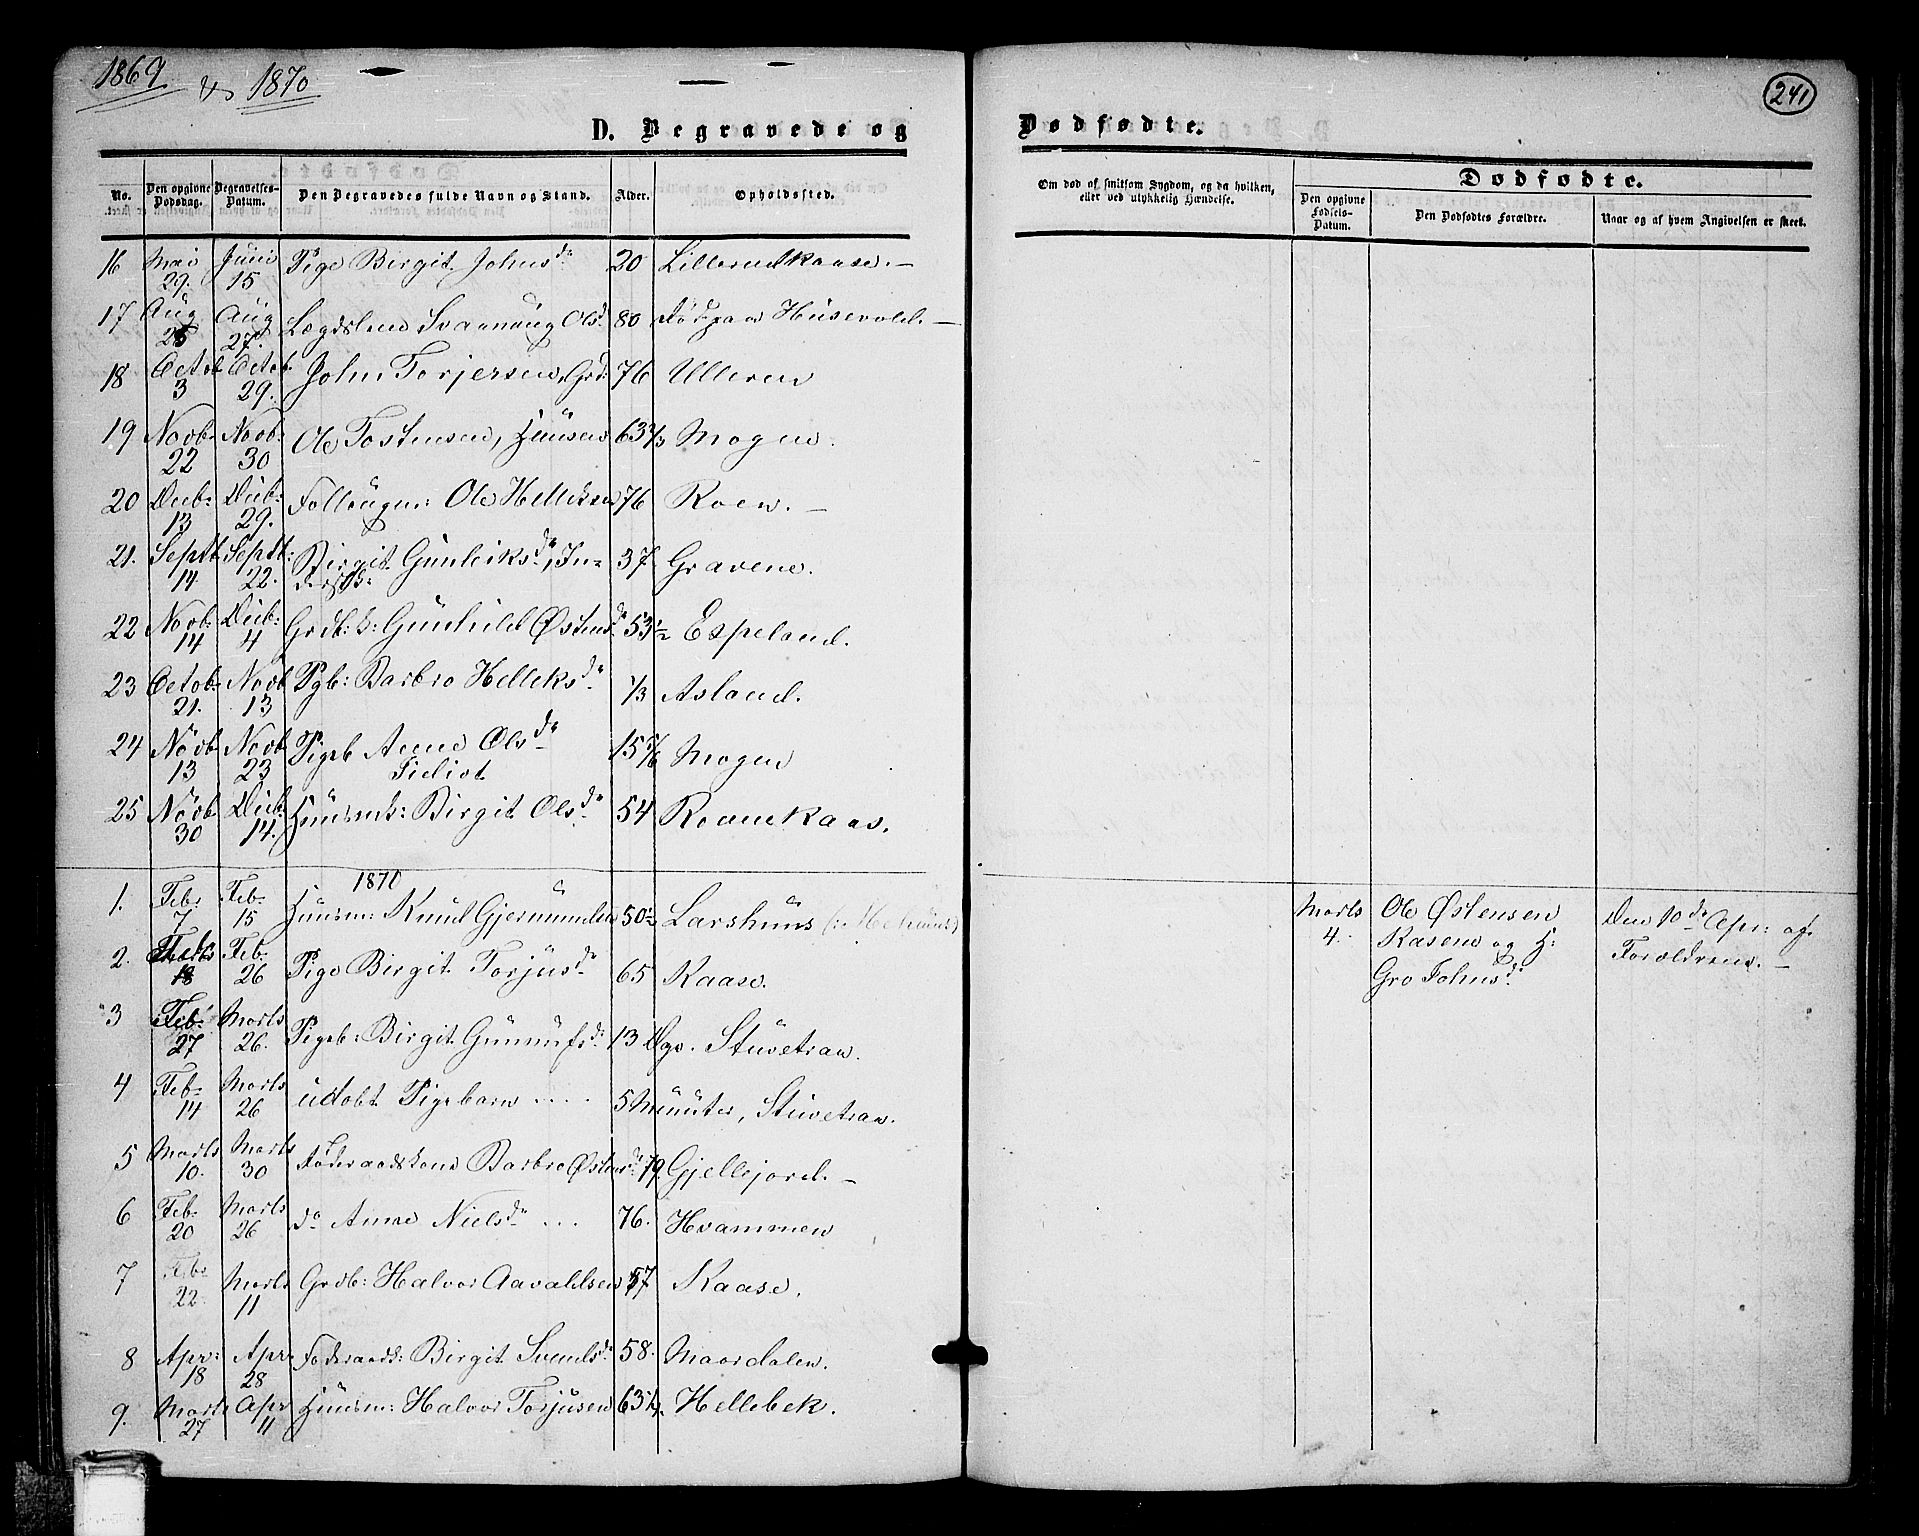 1869 & 1870
241
D. Begravede og Dødfødte.
No. Den opgivne Dødsdag. Begravelses-Datum. Den Begravedes fulde Navn og Stand. Alder. Opholdssted.
Om død af smitsom Sygdom, og da hvilken, eller ved ulykkelig Hændelse.
Dødfødte.
Den opgivne Fødsels-Datum. Den Dødfødtes Forældre. Naar og af hvem Angivelsen er skeet.
16 Mai 29. Juni 15 Pige Birgit Johnsd. 20 Lillerudkaase. –
17 Aug 25 Aug 27. Lægdslem Svanaug Olsd. 80 Død paa Husevold. –
18 Octob 3 Octob. 29. John Torjersen, Grd: 76 Ulleren
19 Novb. 22 Novb. 30 Ole Tostensen, Huusm 63 2/3 Mogen.
20 Decb. 13 Decb. 29. Folleaugm: Ole Helleksen 76 Roen. –
21. Septb. 14 Septb: 22. Birgit Gunleiksd., In-
derst 37 Gravene.
22 Novb. 14 Decb: 4 Grdb: k: Gunhild Østensd. 53 1/2 Espeland.
23 Octob. 21. Novb 13 Pgb: Barbro Helleksd. 1/3 Asland.
24 Novb 13 Novb 23 Pigeb Anne Olsd.
Idiot 15 5/6 Mogen
25 Novb 30 Decb. 14. Huusmk: Birgit Olsd. 54 Roenekaas.
1870
1. Feb. 7 Feb. 15 Huusm: Knud Gjermundsen 50 1/2 Larshuus
2. Feb. 18 Feb. 26 Pige Birgit Torjusd. 65 Kaase.
3 Feb. 27 Marts 26. Pigeb: Birgit Gunnufsd. 13 Dge. Stuvetraa.
4 Feb. 14 Marts 26 udøbt Pigebarn .... 5 Minuter, Stuvetraa.
5 Marts 10. Marts 30 Føderaadskone Barbro Østensd. 79. Gjellejord. –
6 Feb. 20 Marts 26 do Anne Nielsd. ... 76. Hvammen
7 Feb. 22. Marts 11 Grdb: Halvor Aavaldsen 57 Kaase.
8 Apr: 18 Apr. 28 Føderaads: Birgit Svendsd. 58. Maardalen.
9. Marts 27 Apr 11 Huusm: Halvor Torjusen 63 1/2. Hellebek.
Marts 4. Ole Østensen
Kasene og H:
Gro Johnsd. Den 10de Apr: af
Forældrene. –